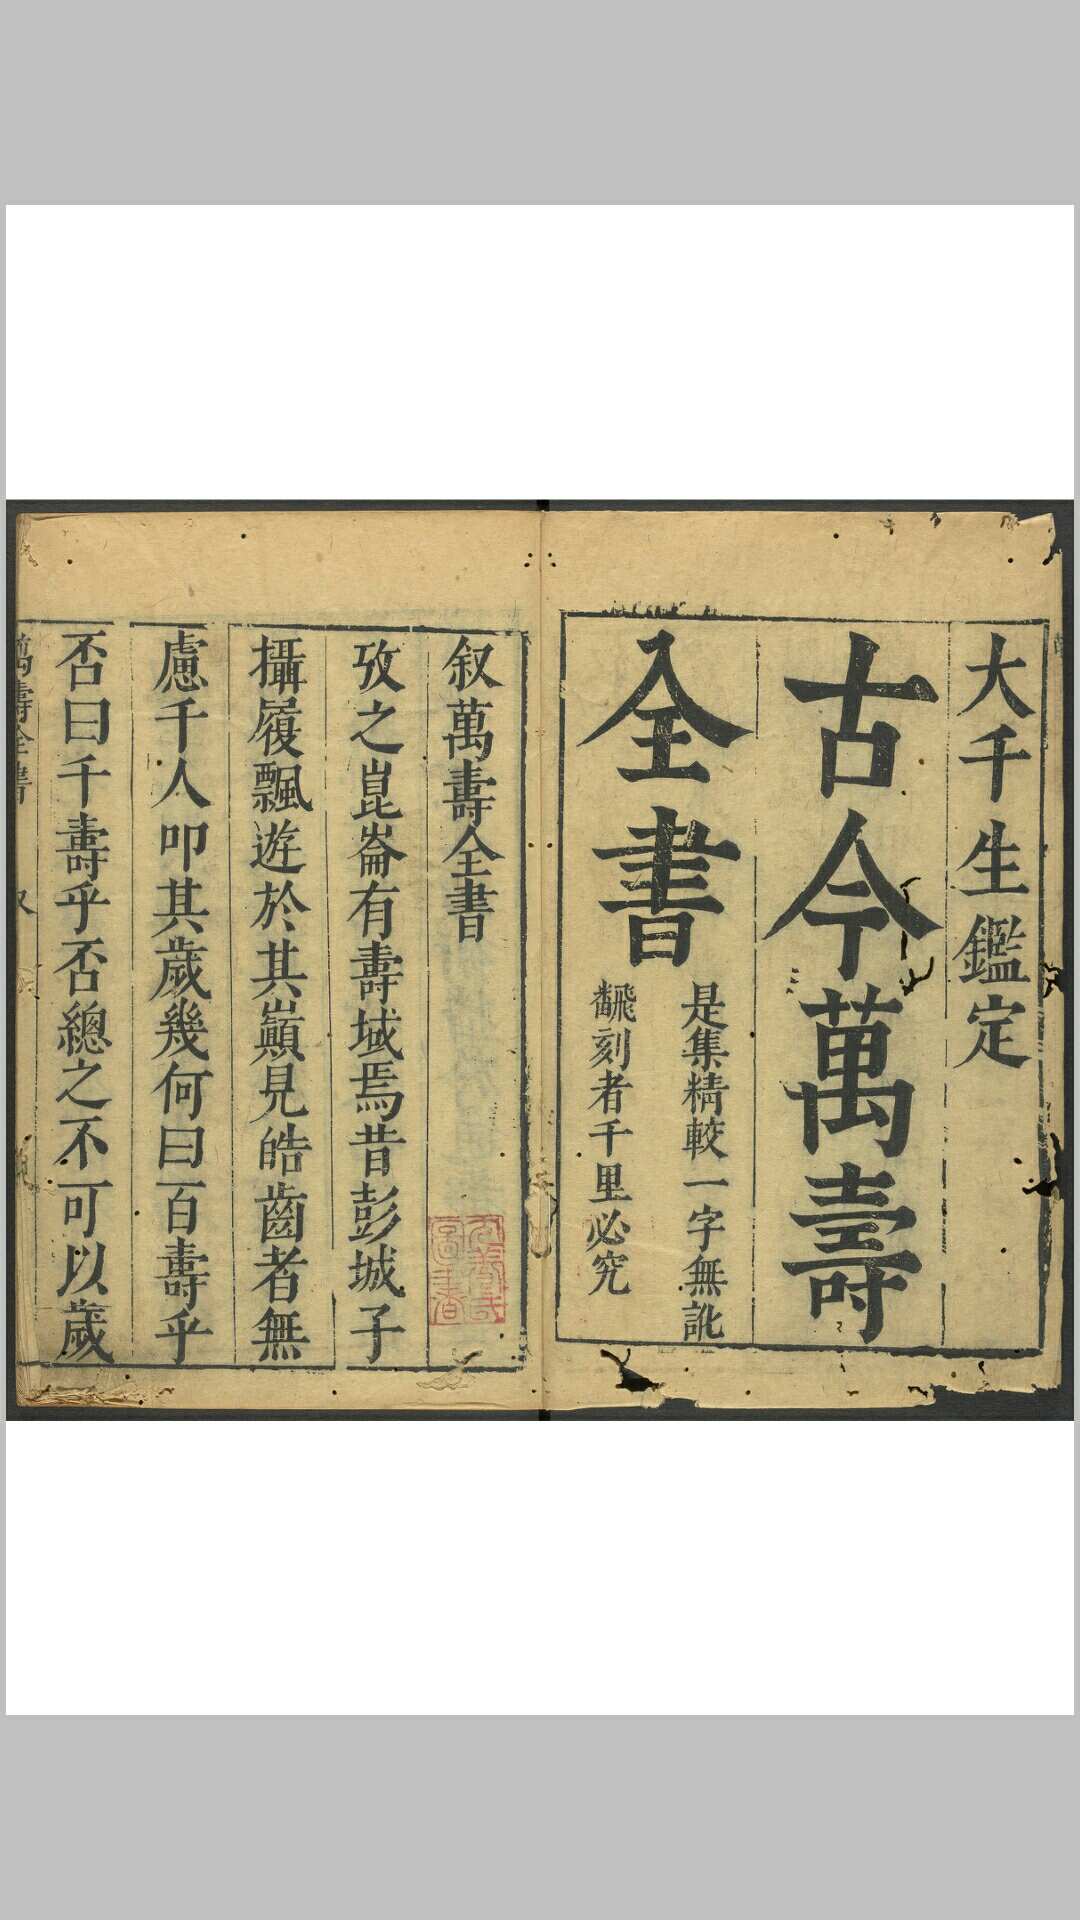 大千生鑑定
古今萬壽
全書
是集精較一字無訛
飜刻者千里必究
叙萬壽全書
攷之崑崙有壽域焉昔彭城子
攝履飄遊於其巔見皓齒者無
慮千人叩其歲幾何曰百壽乎
否曰千壽乎否總之不可以歲
萬壽全書